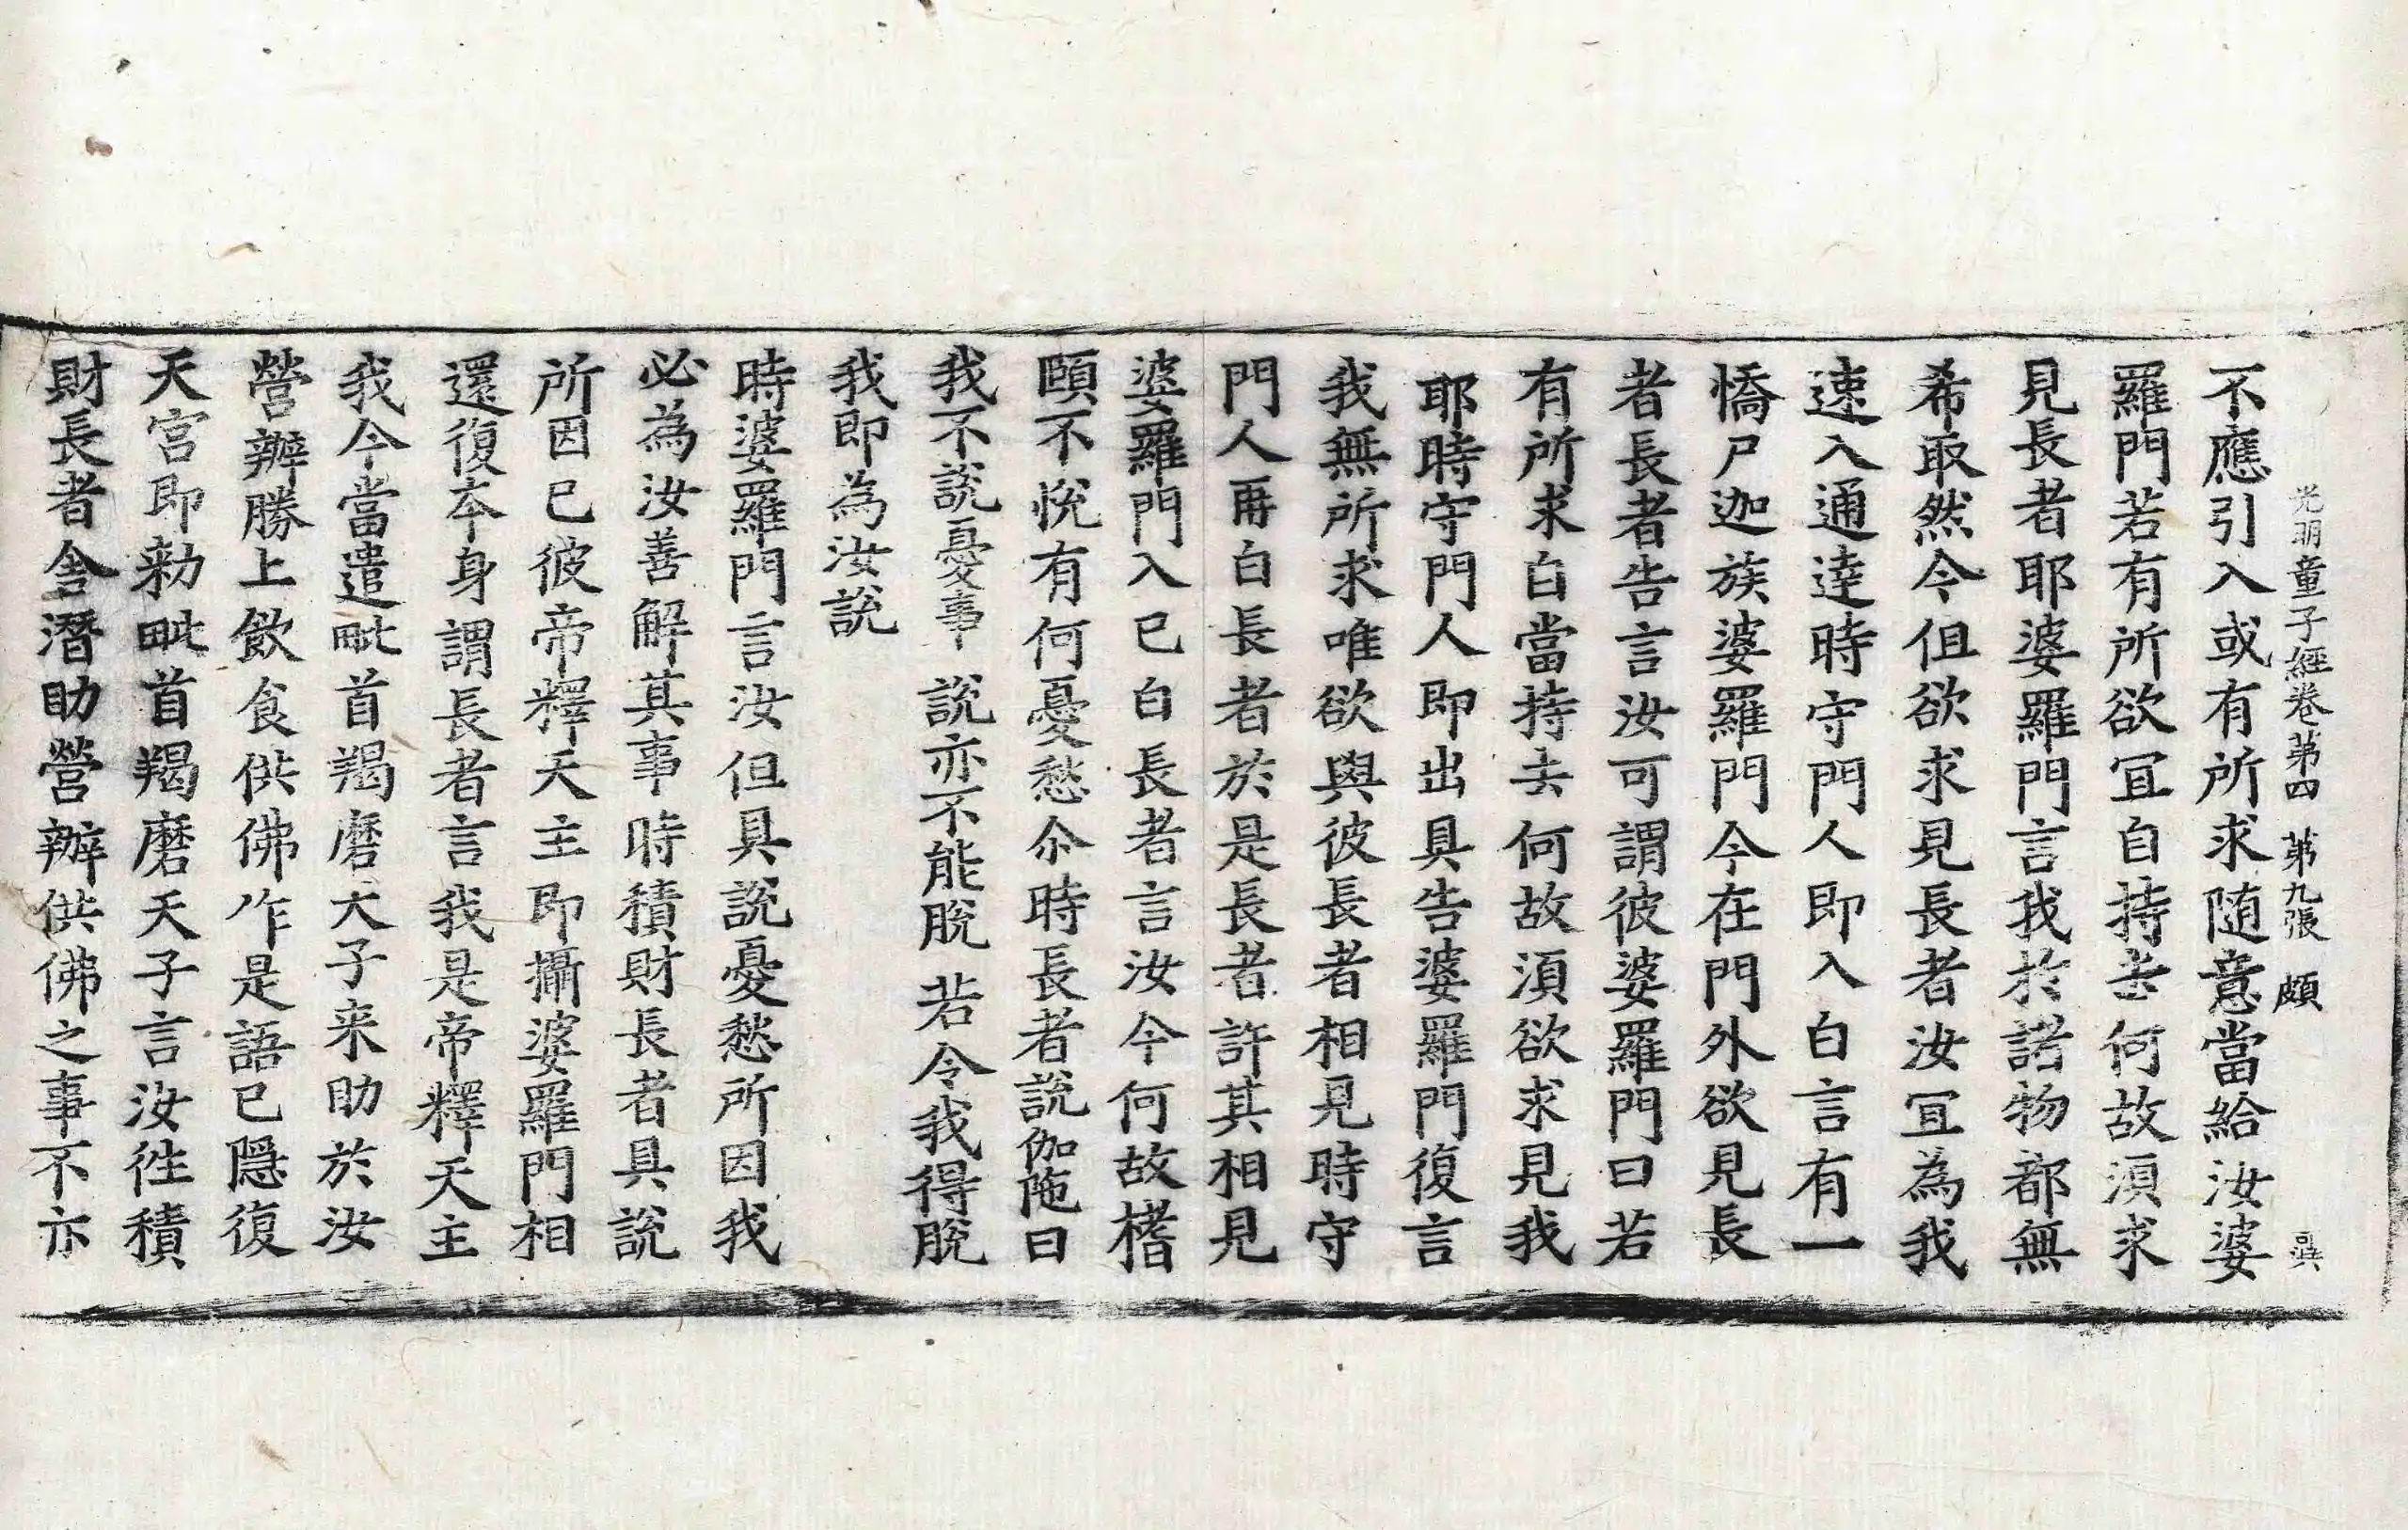 光明童子經卷第四 第九張 頗
不應引入或有所求随意當給汝婆
羅門若有所欲冝自持去何故湏求
見長者耶婆羅門言我於諸物都無
希取然今但欲求見長者汝冝為我
速入通達時守門人即入白言有一
憍尸迦族婆羅門今在門外欲見長
者長者告言汝可謂彼婆羅門曰若
有所求自當持去何故湏欲求見我
耶時守門人即出具告婆羅門復言
我無所求唯欲與彼長者相見時守
門人再白長者於是長者許其相見
婆羅門入已白長者言汝今何故搘
頤不悅有何憂愁尒時長者說伽陁曰
我不說憂事 說亦不能脫 若令我得脫
我即為汝說
時婆羅門言汝但具說憂愁所因我
必為汝善解其事時積財長者具說
所因已彼帝釋天主即攝婆羅門相
還復本身謂長者言我是帝釋天主
我今當遣毗首羯磨天子来助於汝
營辦勝上飲食供佛作是語已隱復
天宮即勑毗首羯磨天子言汝徃積
財長者舍潛助營辦供佛之事不亦